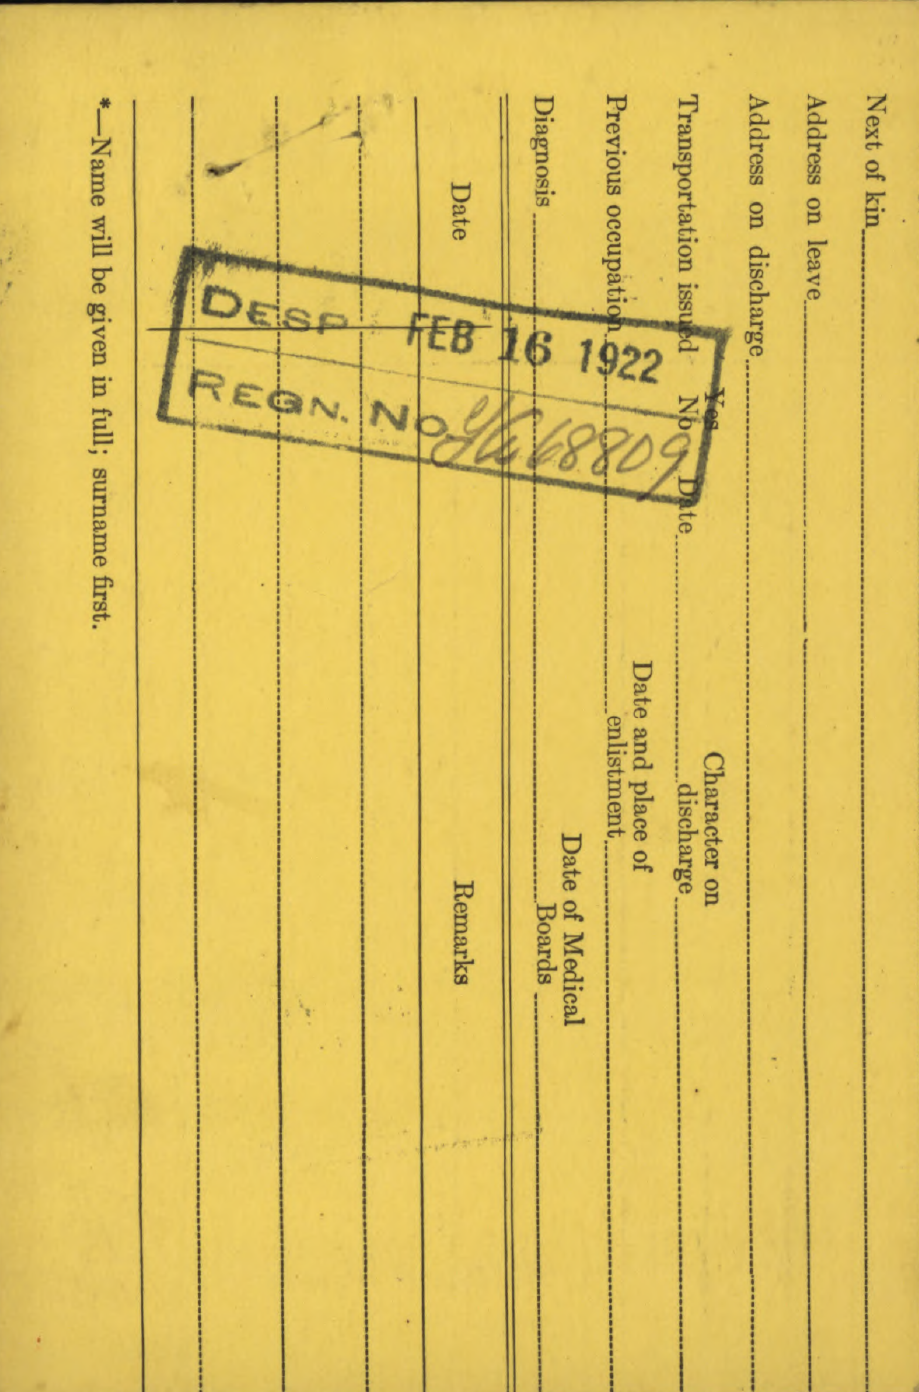 Next of kin
Address on leave
Address on discharge
Transportation issued Yes No Date Character on discharge
Previous occupation Date and place of enlistment
Diagnosis Date of Medical Boards
Date Remarks
*—Name will be given in full; surname first.
DESP FEB 16 1922
REGN. No 68809